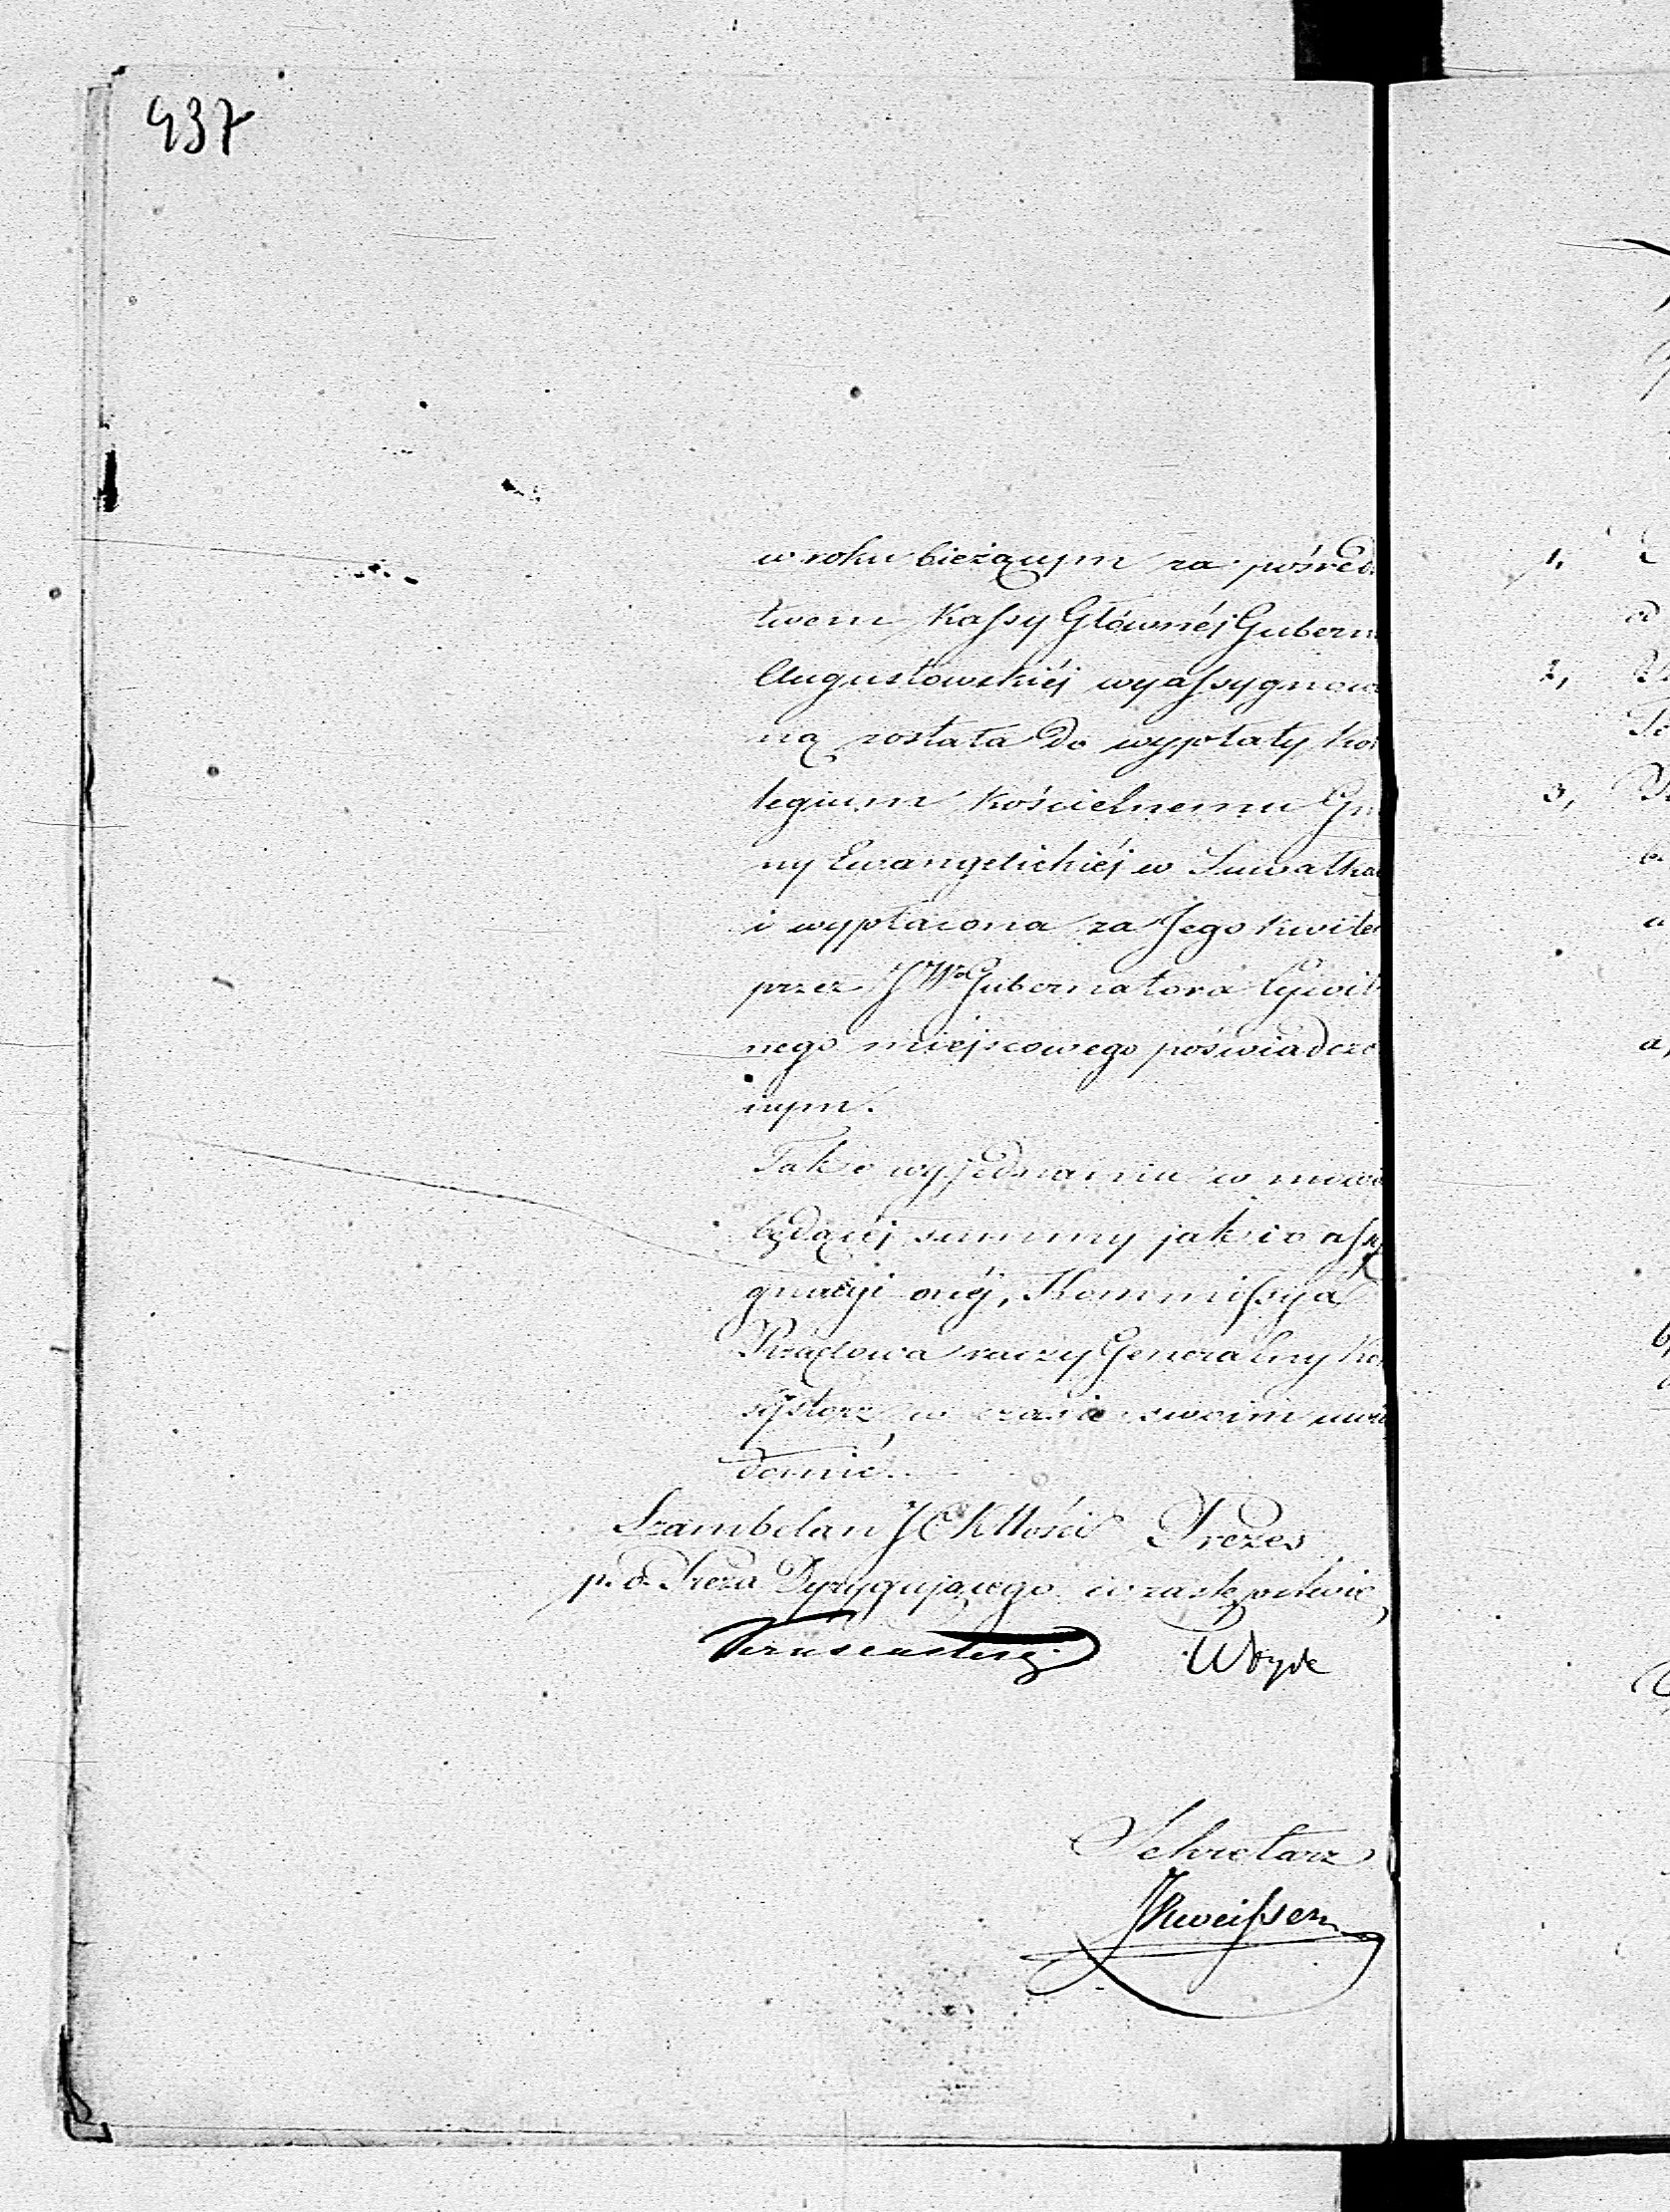 437
w roku bieżącym za pośred
twem Kassy Głównéj Gubern
Augustowskiéj wyassygnowa
ną została do wypłaty Kol
legium Kościelnemu Gmi
ny Ewangelickiéj w Suwałkac
i wypłacona za Jego kwitem
przez JW Gubernatora Cywil
nego miejscowego poświadczo
nym.
Tak o wyjednaniu w mowie
będącéj summy jak i o assy
gnacyi onéj, Kommissya
Rządowa raczy Generalny Kon
systorz w czasie swoim uwia
domić.
Szambelan J C K Mości Prezes
p. o. Preza Dyrygującego w zastępstwie
Woyde
Sekretarz
1,
2,
3,
a,